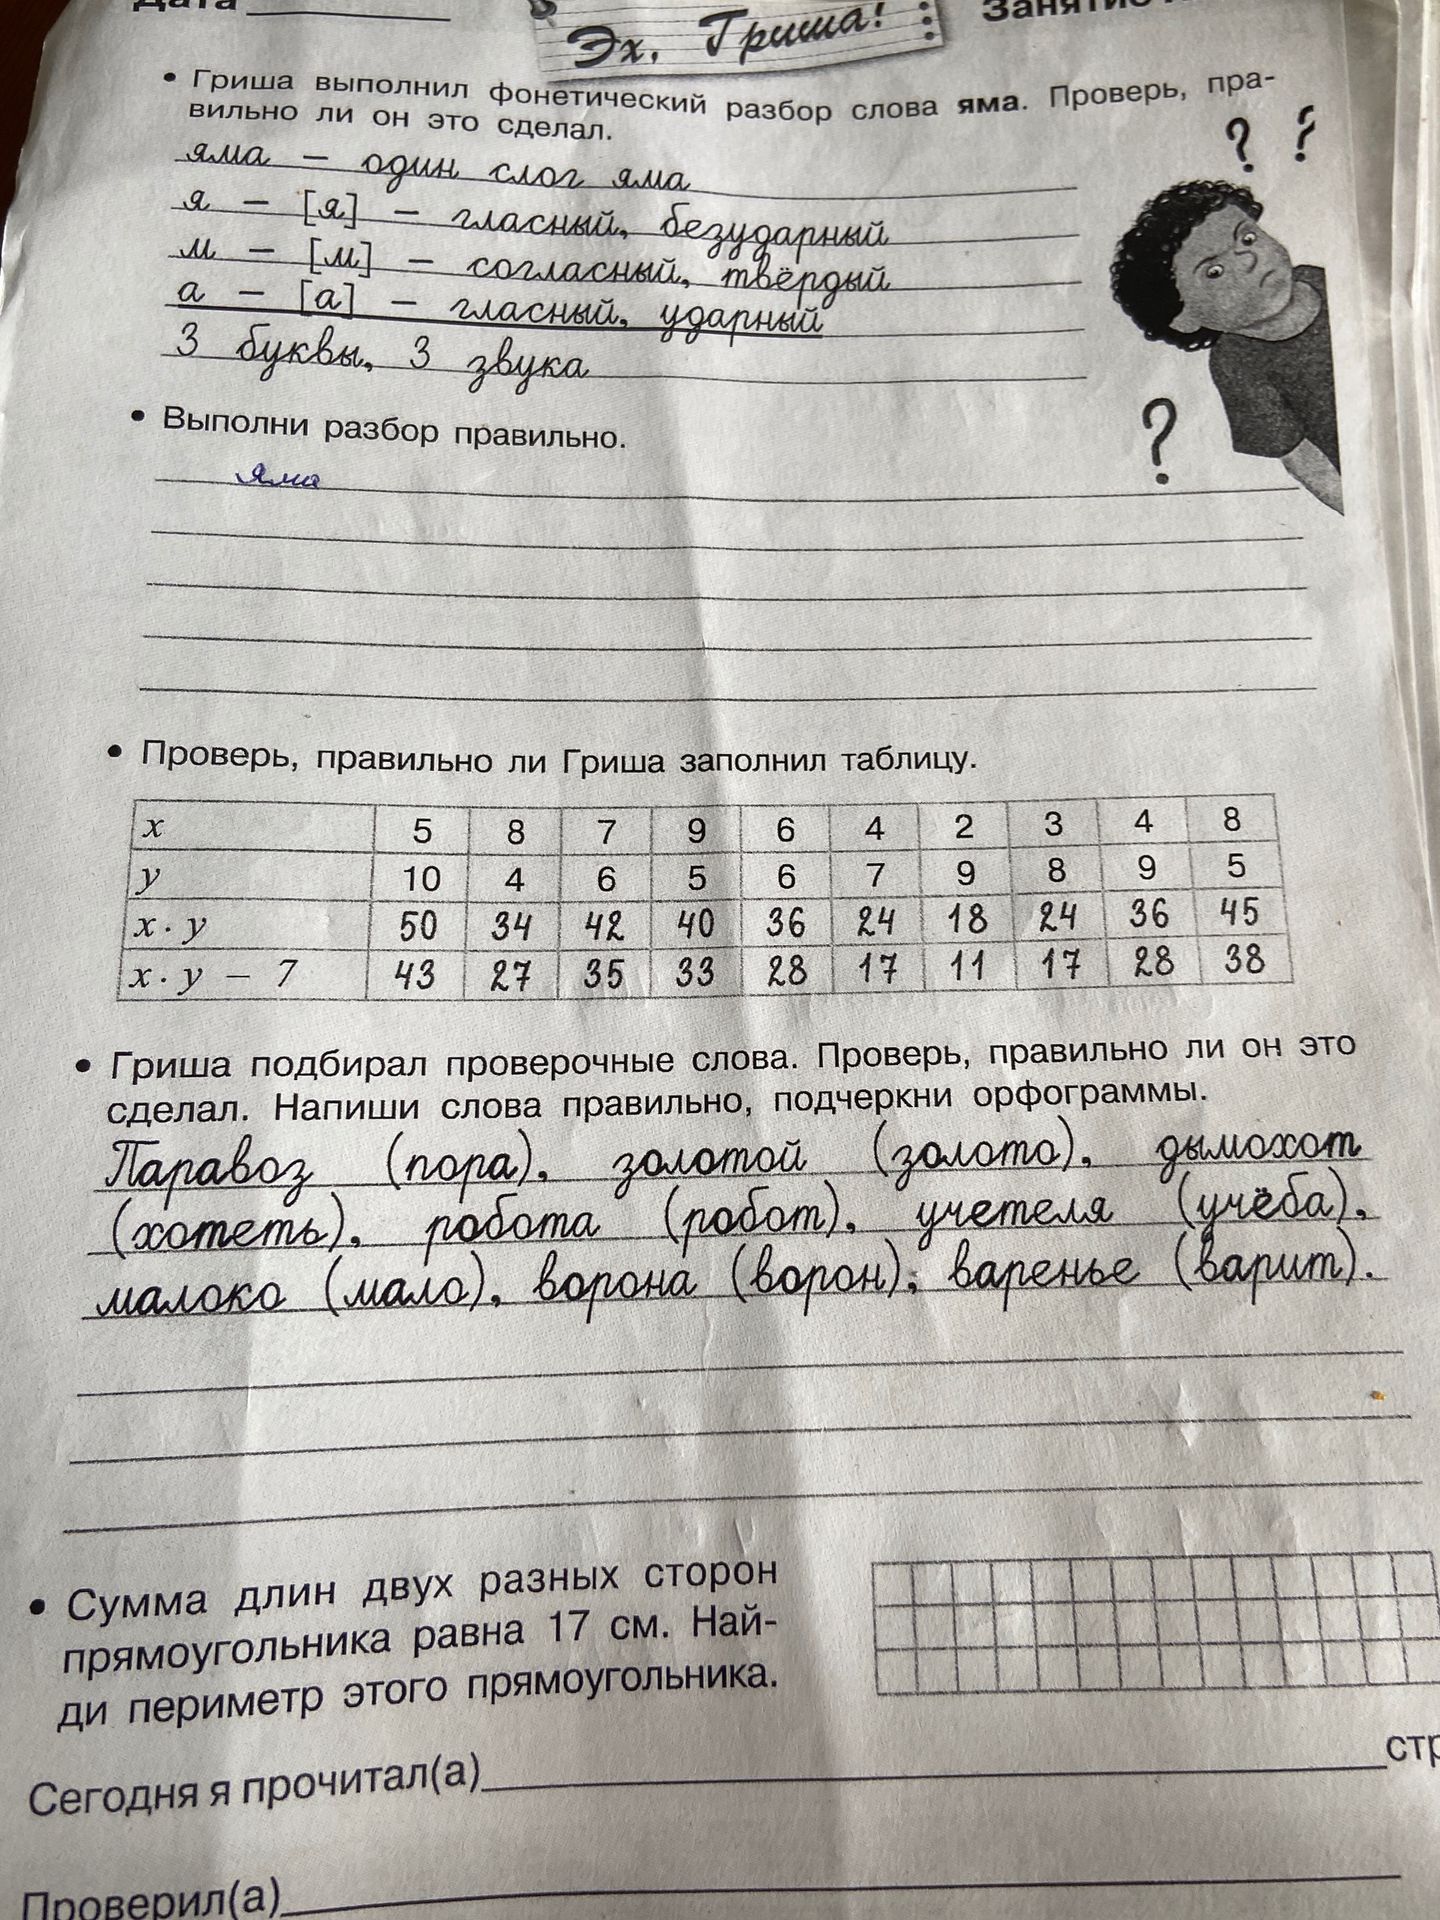 Дата
Эх, Гриша!
Занятие
• Гриша выполнил фонетический разбор слова яма. Проверь, пра-
вильно ли он это сделал.
яма – один слог яма
я – [я] – гласный, безударный
м – [м] – согласный, твёрдый
а – [а] – гласный, ударный
3 буквы, 3 звука
• Выполни разбор правильно.
яма
• Проверь, правильно ли Гриша заполнил таблицу.
x 5 8 7 9 6 4 2 3 4 8
y 10 4 6 5 6 7 9 8 9 5
x · y 50 34 42 40 36 24 18 24 36 45
x · y – 7 43 27 35 33 28 17 11 17 28 38
• Гриша подбирал проверочные слова. Проверь, правильно ли он это
сделал. Напиши слова правильно, подчеркни орфограммы.
Паравоз (пора), золотой (золото), дымохот
(хотеть), робота (робот), учетеля (учёба),
малоко (мало), ворона (ворон), варенье (варит).
• Сумма длин двух разных сторон
прямоугольника равна 17 см. Най-
ди периметр этого прямоугольника.
Сегодня я прочитал(а) стр
Проверил(а)
? ? ?